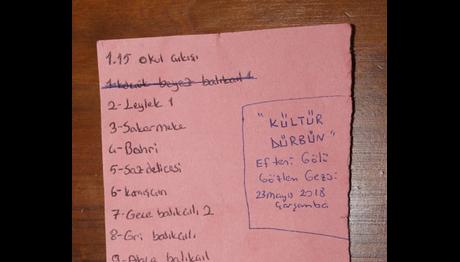 1.15 okul çıkışı
1-Küçük beyaz balıkçıl 1
2-Leylek 1
3-Sakarmeke
4-Bahri
5-Saz delicesi
6-karışçın
7-Gece balıkçılı 2
8-Gri balıkçılı
9-Alaca balıkçıl
"KÜLTÜR
DÜRBÜN"
Efteni Gölü
Gözlem Gezisi
23 Mayıs 2018
Çarşamba